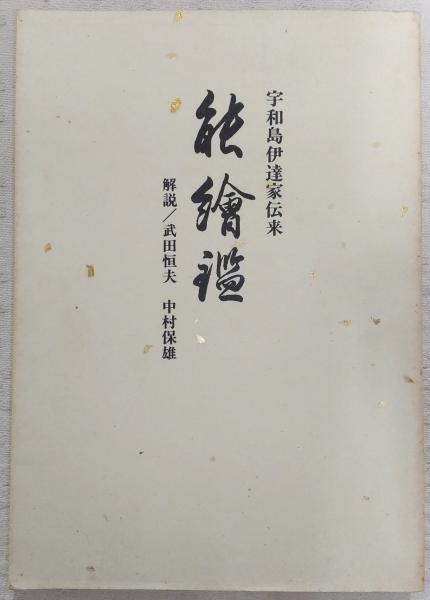 宇和島伊達家伝来
能繪鑑
解説／武田恒夫 中村保雄